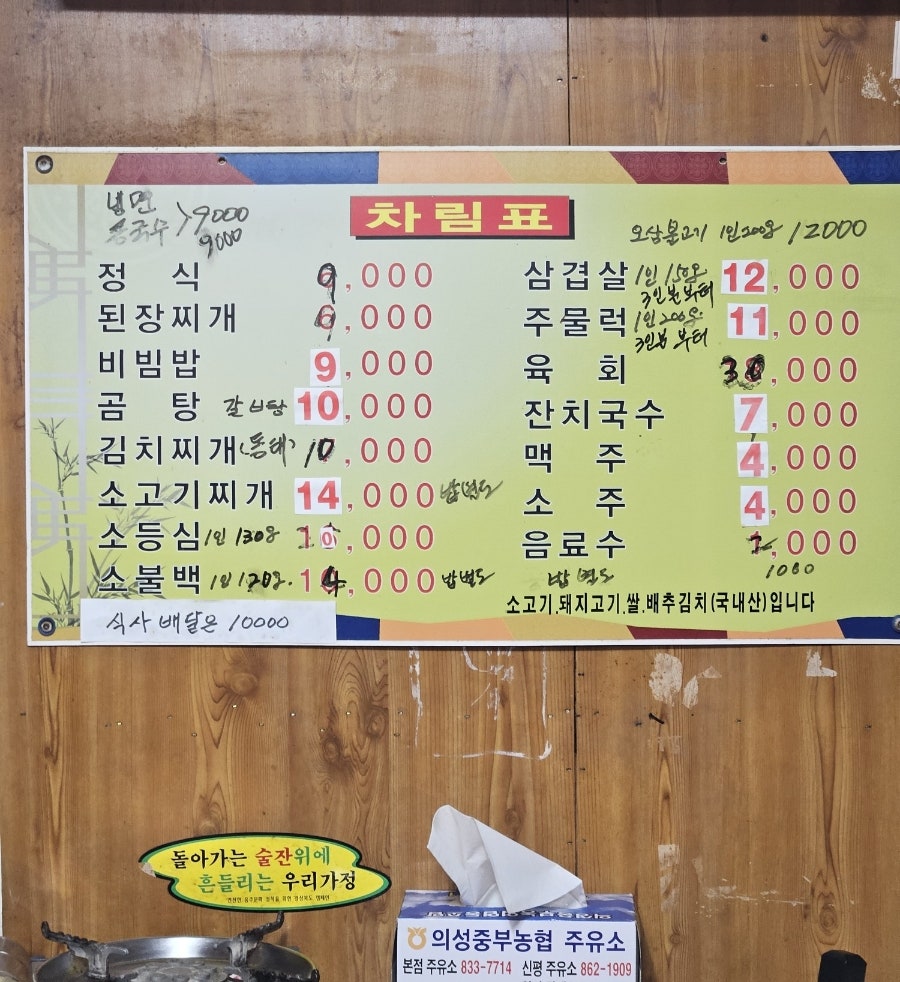 차림표
냉면 > 9000
콩국수 9000
오삼불고기 1인 200g 12000
정식 9,000
된장찌개 9,000
비빔밥 9,000
곰탕 갈비탕 10,000
김치찌개(동태) 10,000
소고기찌개 14,000 밥별도
소등심 1인 130g ,000
소불백 1인 120g. 14,000 밥별도
식사 배달은 10000
삼겹살 1인 150g 3인분 부터 12,000
주물럭 1인 200g. 3인분 부터 11,000
육회 30,000
잔치국수 7,000
맥주 4,000
소주 4,000
음료수 ,000
밥 별도 1000
소고기.돼지고기.쌀.배추김치(국내산)입니다
돌아가는 술잔위에
흔들리는 우리가정
의성중부농협 주유소
본점 주유소 833-7714 신평 주유소 862-1909